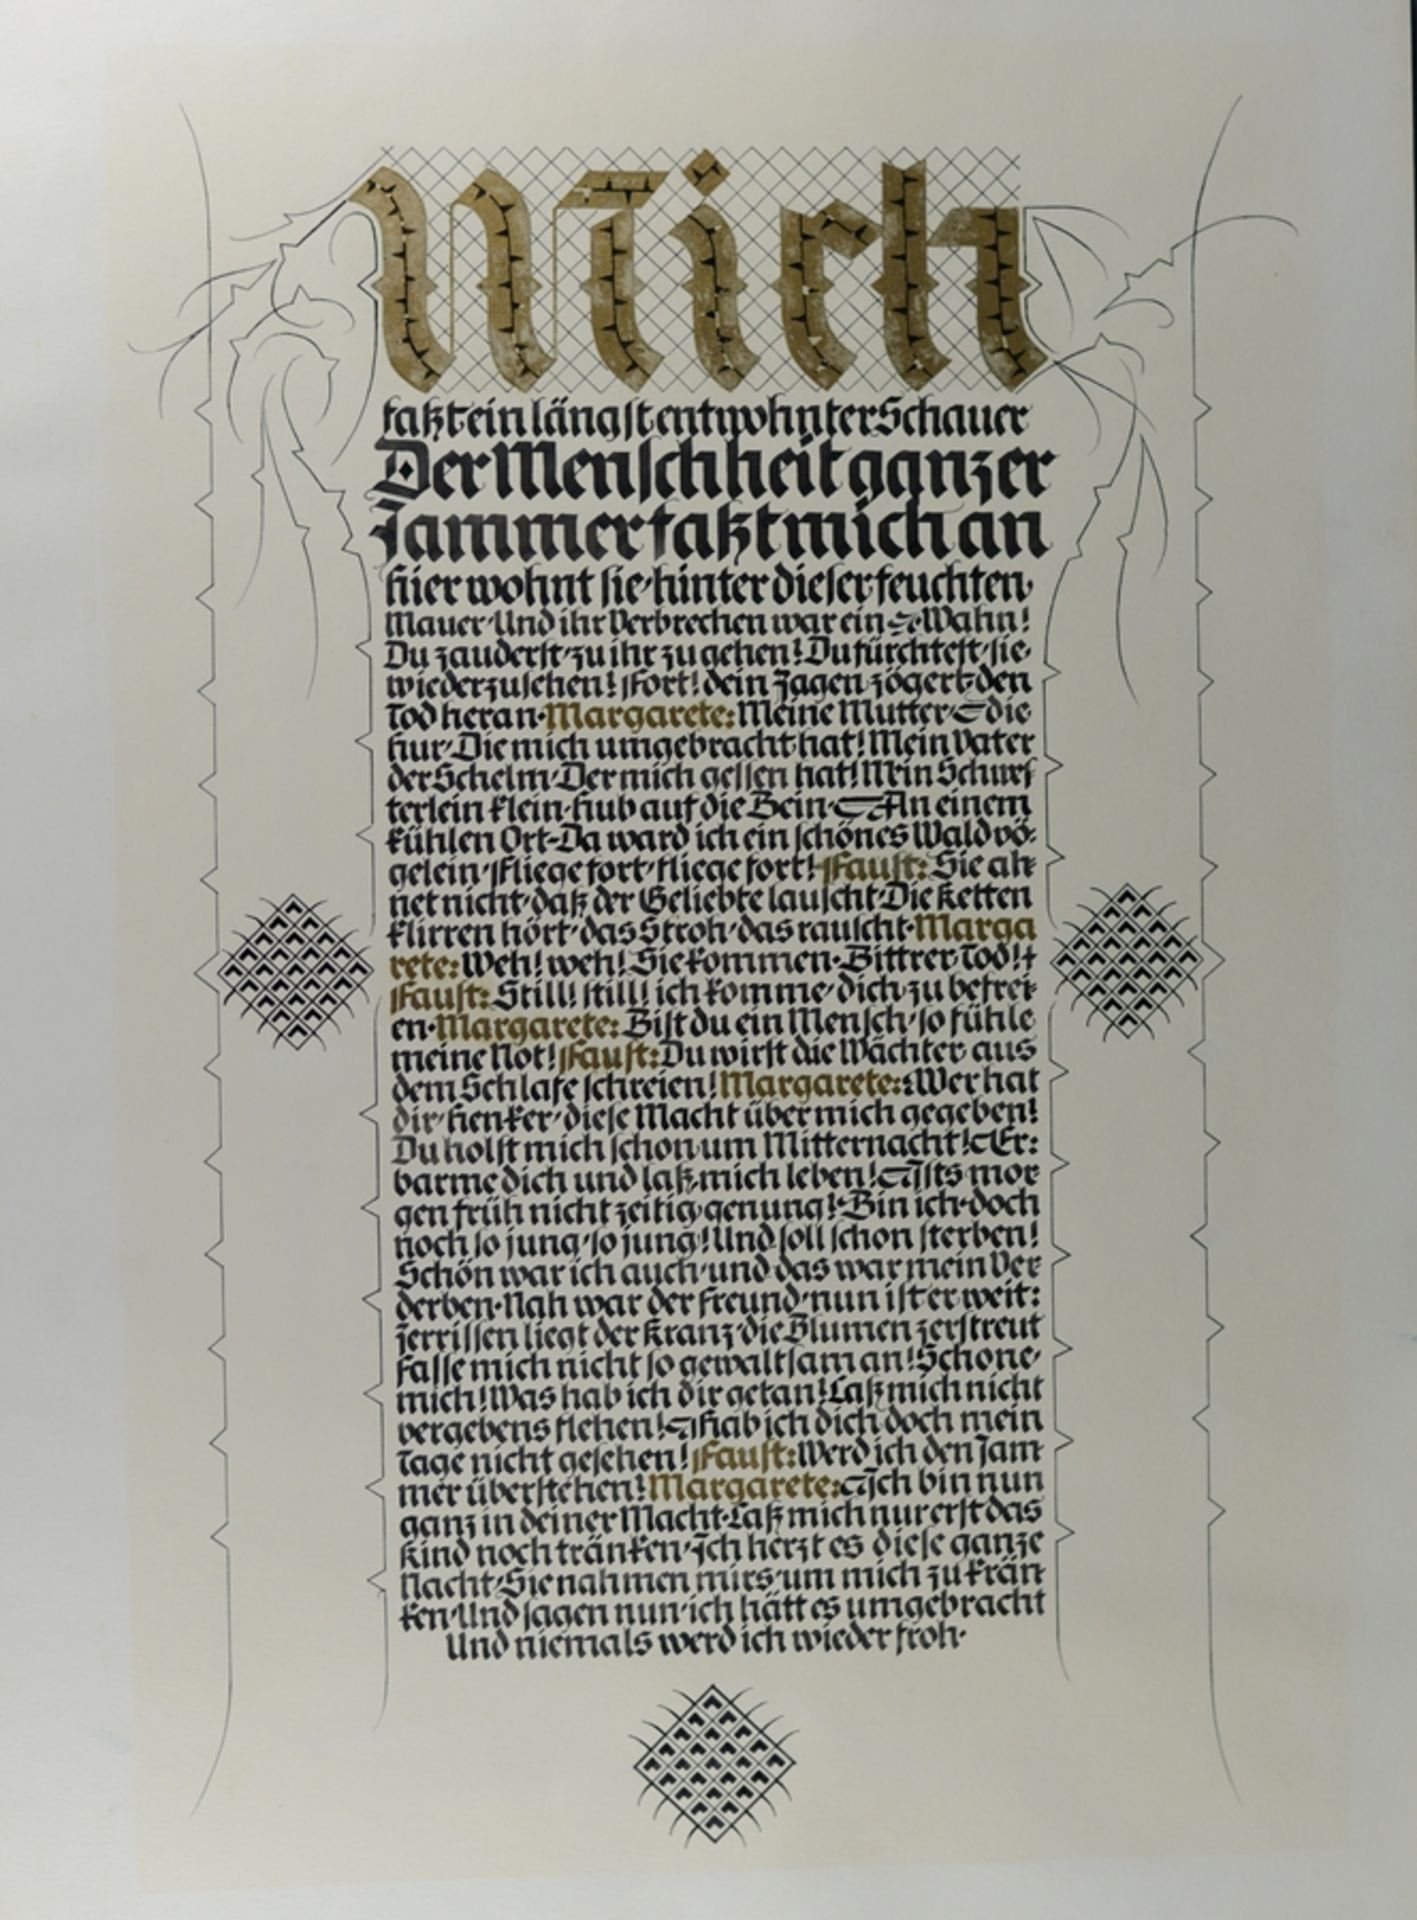 Mich
faßt ein längst entwohnter Schauer
Der Menschheit ganzer
Jammer faßt mich an
hier wohnt sie, hinter dieser feuchten,
Mauer, Und ihr Verbrechen war ein Wahn!
Du zauderst, zu ihr zu gehen! Du fürchtest, sie,
wiederzusehen! Fort! dein Zagen zögert den
Tod heran. Margarete: Meine Mutter, die
hur, Die mich umgebracht hat! Mein Vater
der Schelm, Der mich gessen hat! Mein Schwes
terlein klein, hub auf die Bein, An einem
kühlen Ort, Da ward ich ein schönes Waldvö-
gelein, Fliege fort, fliege fort! Faust: Sie ah-
net nicht, daß der Geliebte lauscht, Die Ketten
klirren hört, das Stroh, das rauscht. Marga
rete: Weh! weh! Sie kommen. Bittrer Tod!
Faust: Still! still! ich komme, dich zu befrei-
en. Margarete: Bist du ein Mensch, so fühle
meine Not! Faust: Du wirst die Wächter aus
dem Schlafe schreien! Margarete: Wer hat
dir, Henker, diese Macht über mich gegeben!
Du holst mich schon um Mitternacht! Er:
barme dich und laß mich leben! Ists mor-
gen früh nicht zeitig genung! Bin ich doch
noch so jung, so jung! Und soll schon sterben!
Schön war ich auch, und das war mein Ver-
derben. Nah war der Freund, nun ist er weit:
Zerrissen liegt der Kranz, die Blumen zerstreut
Fasse mich nicht so gewaltsam an! Schone,
mich! Was hab ich dir getan! Laß mich nicht
vergebens flehen! Hab ich dich doch mein
Tage nicht gesehen! Faust: Werd ich den Jam-
mer überstehen! Margarete: Ich bin nun
ganz in deiner Macht. Laß mich nur erst das
Kind noch tränken, Ich herzt es diese ganze
Nacht, Sie nahmen mirs, um mich zu krän-
ken, Und sagen nun, ich hätt es umgebracht
Und niemals werd ich wieder froh.